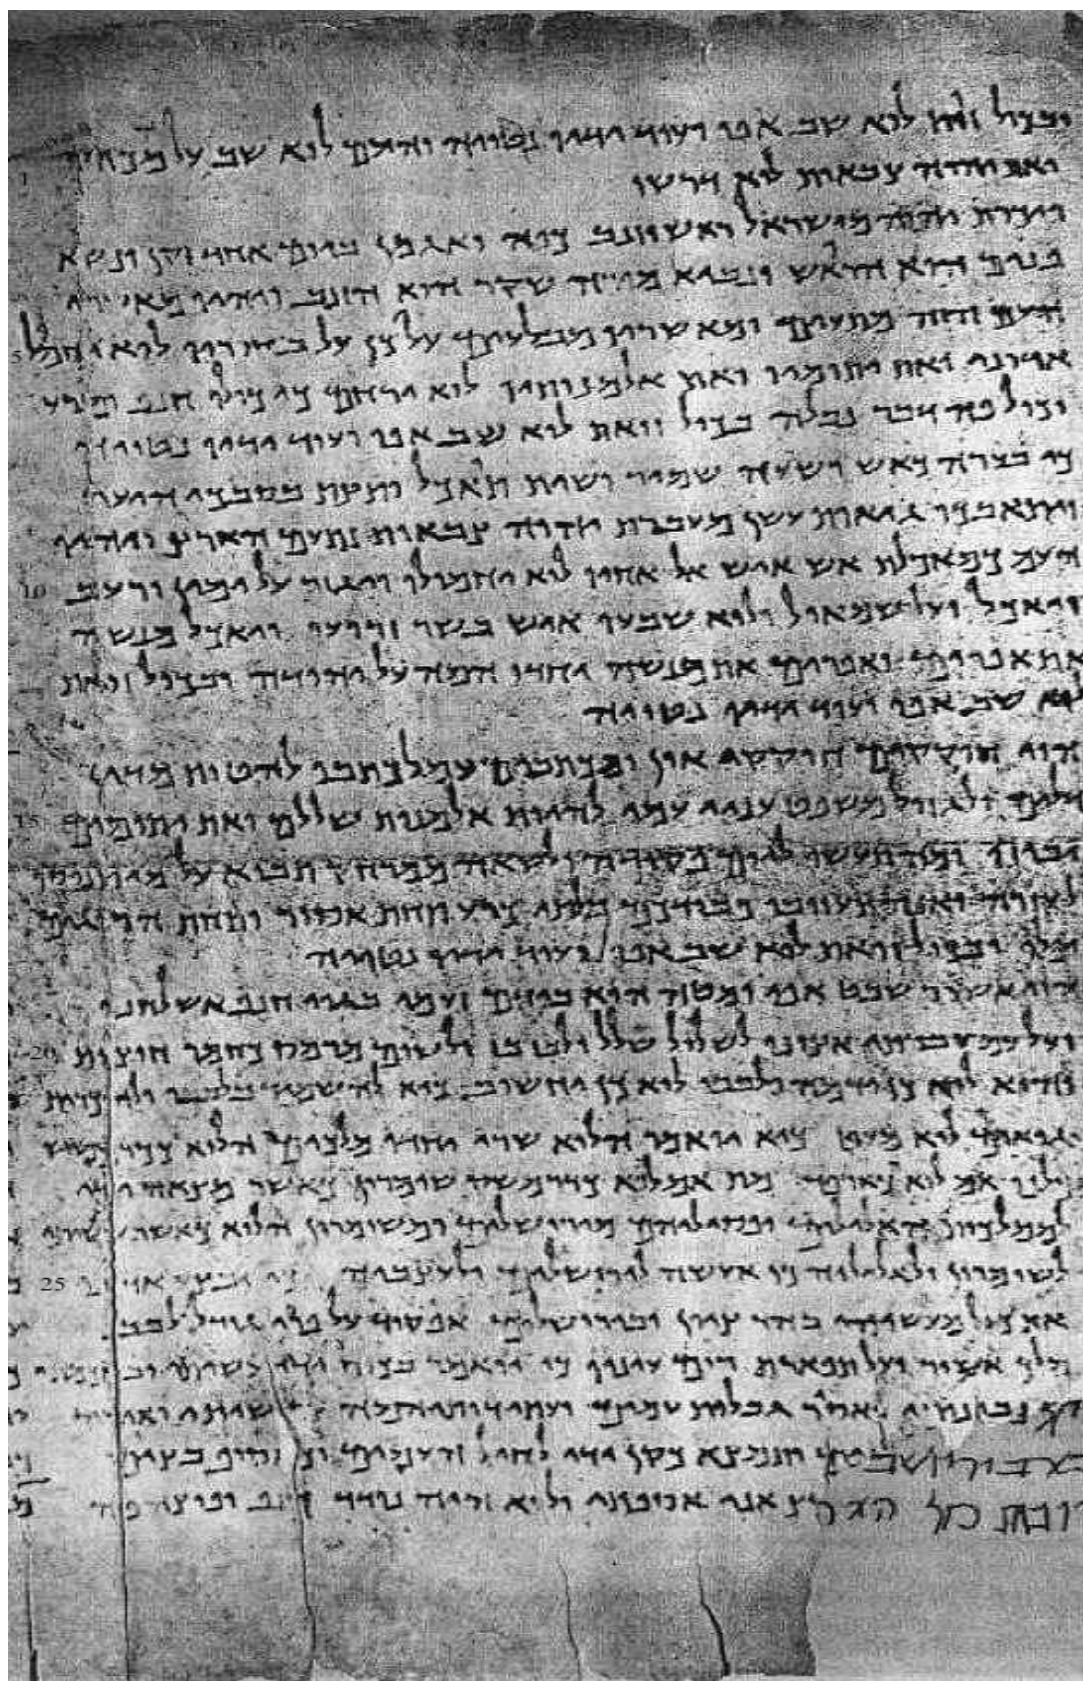 ובכול זות לוא שב אפו ועוד ידיו נטויה והעם לוא שב על
ואת יהוה צבאות לוא דרשו
ויכרת יהוה מישראל ראש וזנב ואגמן ביום אחד זקן ונשא
פנים הוא הראש ונביא מורה שקר הוא הזנב ויהיו
העם הזה מתעים ומאשריו מבלעים על כן על בחוריו לוא יחמול
אדוני ואת יתומיו ואת אלמנותיו לוא ירחם כי כולם חנף ומרע
וכול פה דבר נבלה בכול זואת לוא שב אפו ועוד ידיו נטויה
כי בערה כאש רשעה שמיר ושית תאכל ותצת בסבכי היער
ויתאבכו גיאות עשן מעברת יהוה צבאות נתעם הארץ ויהיו
העם כמאכלת אש איש אל אחיו לוא יחמולו ויגזר על ימין ורעב
ויאכל ועל שמאול ולוא שבעו איש בשר זרועו יואכל מנשה
את אפרים ואפרים את מנשה יחדו המה על יהודה ובכול זואת
לוא שב אפו ועוד ידיו נטויה
הוי חוקקים חוקקי און ומכתבים עמל כתבו להטות מדין
דלים ולגזול משפט עניי עמי להיות אלמנות שללם ואת יתומים
יבוזו ומה תעשו ליום פקודה ולשאה ממרחק תבוא על מי תנוסו
לעזרה ואנה תעזובו כבודכם בלתי כרע תחת אסור ותחת
ובכול זואת לוא שב אפו ועוד ידיו נטויה
הוי אשור שבט אפי ומטה הוא בידם זעמי בגוי חנף אשלחנו
ועל עם עברתי אצונו לשלול שלל ולבוז בז ולשום מרמס כחמר חוצות
והוא לוא כן ידמה ולבבו לוא כן יחשוב כיא להשמיד בלבבו ולהכרית
גואים לוא מעט כיא יואמר הלוא שרי יחדו מלכים הלוא
כלנו אם לוא כארפד חמת אם לוא כדרמשק שומרון כאשר מצאה ידי
לממלכות האלילים ופסיליהם מירושלים ומשומרון הלוא כאשר עשיתי
לשומרון ולאליליה כן אעשה לירושלים ולעצביה כי יבצע אדוני
את כול מעשיהו בהר ציון ובירושלים אפקוד על פרי גודל לבב
מלך אשור ועל תפארת רום עיניו כי יואמר בכוח ידי עשיתי
גבולות עמים
ותמצא כקן ידי לחיל העמים
אני אספתי ולוא היה נודד כנף ופוצה פה